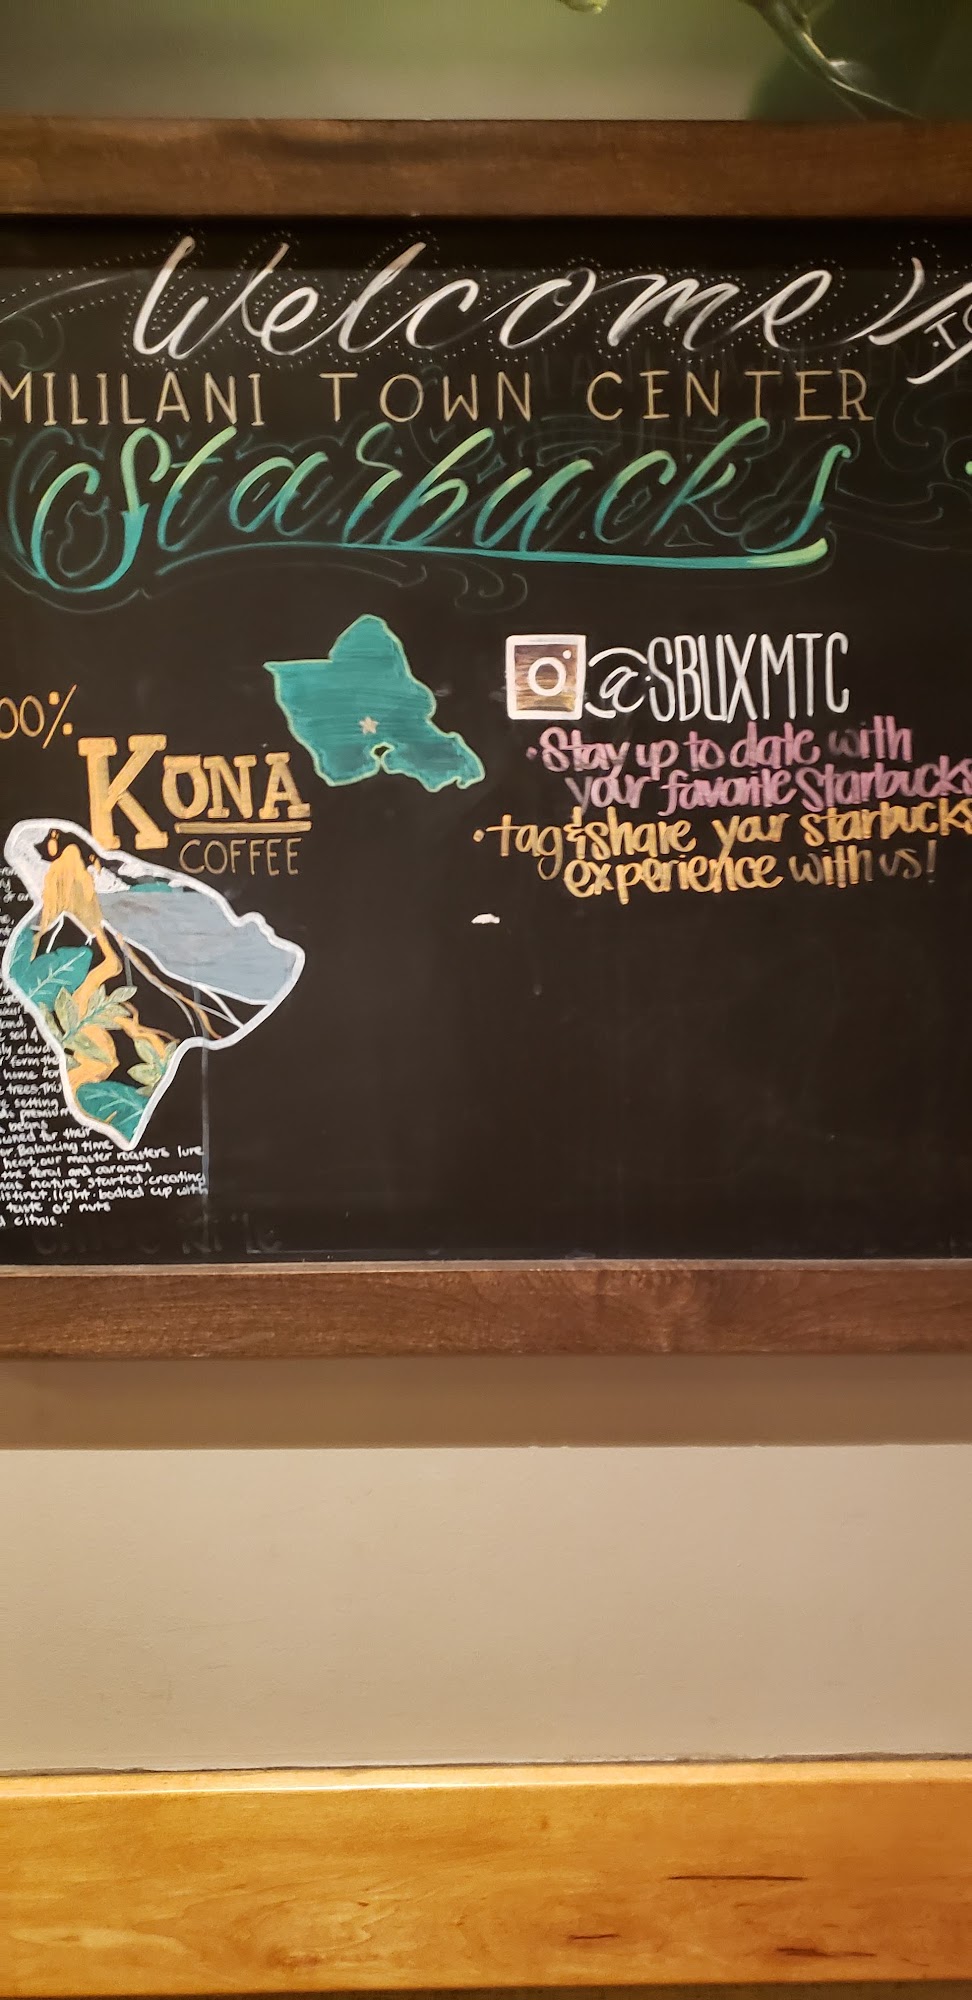 Welcome
MILILANI TOWN CENTER
Starbucks
00%
KONA
COFFEE
@SBUXMTC
• Stay up to date with
your favorite Starbucks
• tag & share your starbucks
experience with us!
soil &
cloud
form the
home for
trees. This
setting
premium
beans
for their
Balancing time
heat, our master roasters lure
the floral and caramel
nature started, creating
light-bodied cup with
taste of nuts
citrus.